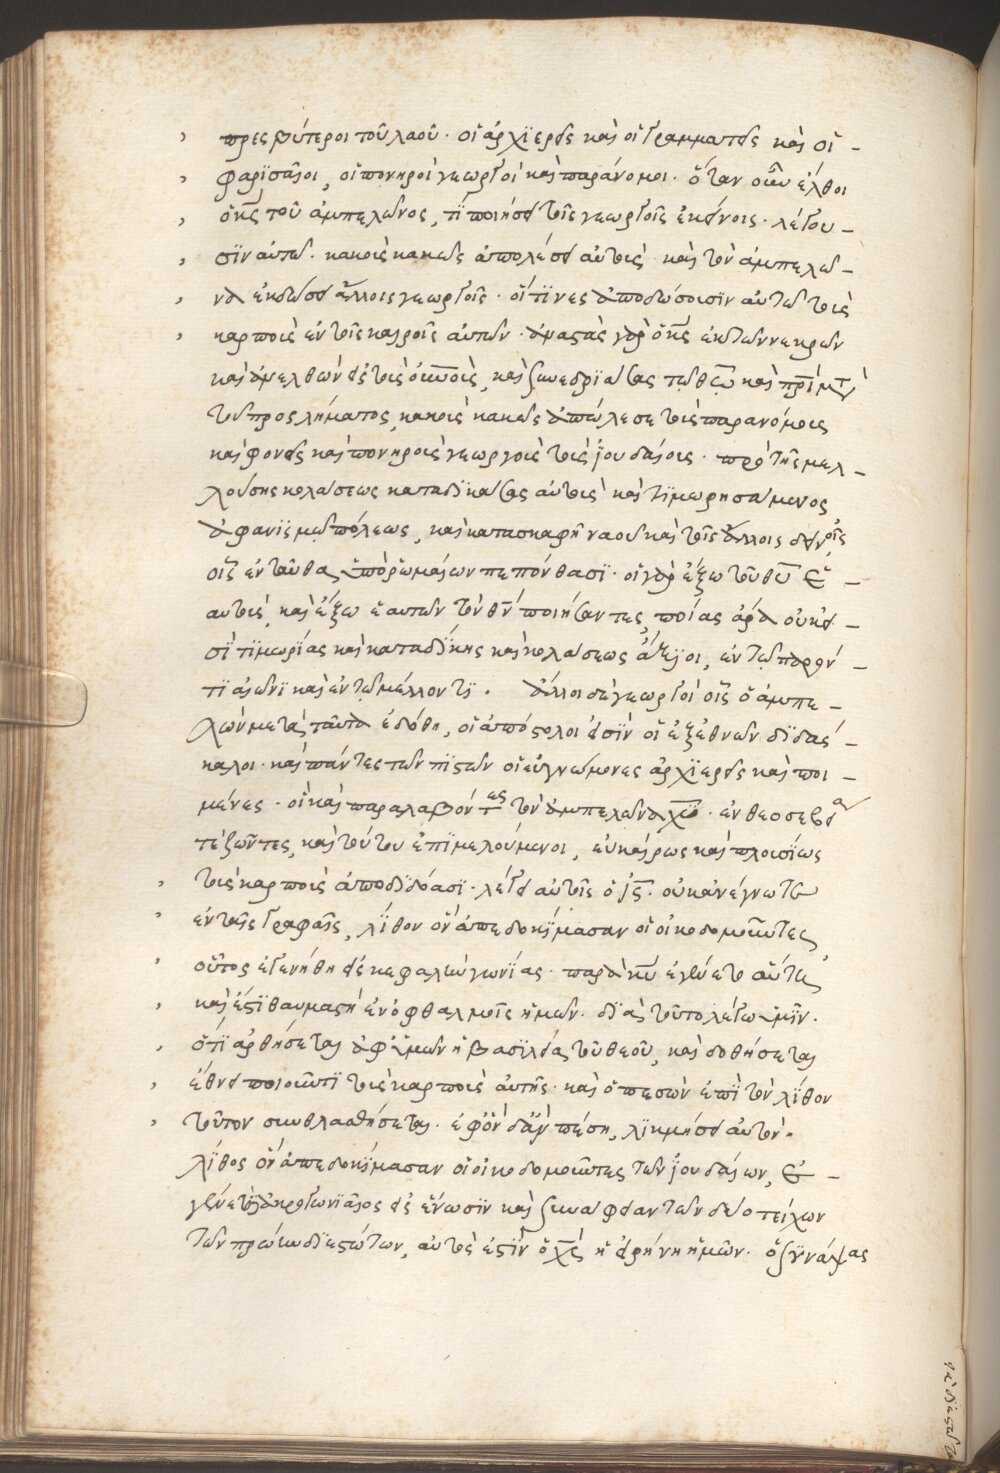 πρεσβύτεροι τοῦ λαοῦ· οἱ ἀρχϊερεῖς καὶ οἱ γραμματεῖς καὶ οἱ
φαρϊσαῖοι, οἱ πονηροὶ γεωργοὶ καὶ παράνομοι· ὅταν οὖν ἔλθοι
ὁ κ̅ς̅ τοῦ ἀμπελῶνος, τί ποιήσει τοῖς γεωργοῖς ἐκείνοις· λέγου-
σϊν αὐτῶ· κακοὺς κακῶς ἀπολέσει αὐτοὺς· καὶ τὸν ἀμπελῶ-
να ἐκδώσει ἄλλοις γεωργοῖς· οἵτϊνες ἀποδώσουσϊν αὐτῶ τοὺς
καρποὺς ἐν τοῖς καιροῖς αὐτῶν· ἀναστὰς γὰρ ὁ κ̅ς̅ ἐκ τῶν νεκρῶν
καὶ ἀνελθὼν εἰς τοὺς ο̅υ̅ν̅ο̅ὺς, καὶ συνεδρϊάσας τῶ θ̅ω̅ καὶ π̅ρ̅ι̅ μετὰ
τοῦ προσλήματος, κακοὺς κακῶς ἀπώλεσε τοὺς παρανόμους
καὶ φονεῖς καὶ πονηροὺς γεωργοὺς τοὺς ἰουδαίους· πρὸ τῆς μελ-
λούσης κολάσεως καταδϊκάσας αὐτοὺς καὶ τϊμωρησάμενος
ἀφανϊσμῶ πόλεως, καὶ κατασκαφῆ ναοῦ καὶ τοῖς ἄλλοις δεινοῖς
οἷς ἐνταῦθα ὑπὸ ῥωμαίων πεπόνθασϊ· οἱ γὰρ ἔξω τοῦ θ̅υ̅ ἑ-
αυτοὺς, καὶ ἔξω ἑαυτῶν τὸν θ̅ν̅ ποιήσαντες, ποίας ἄρα οὐκ εἰ-
σὶ τϊμωρίας καὶ καταδίκης καὶ κολάσεως ἄξϊοι, ἐν τῶ παρόν-
τϊ αἰῶνϊ καὶ ἐν τῶ μέλλοντϊ. ἄλλοι δὲ γεωργοὶ οἷς ὁ ἀμπε-
λὼν μετὰ ταῦτα ἐδόθη, οἱ ἀπόστολοι εἰσὶν οἱ ἐξ ἐθνῶν δϊδάσ-
καλοι· καὶ πάντες τῶν πϊστῶν οἱ εὐγνώμονες ἀρχϊερεῖς καὶ ποι-
μένες· οἱ καὶ παραλαβόντες τὸν ἀμπελῶνα χ̅υ̅· ἐν θεοσεβεία
τὲ ζῶντες, καὶ τούτου ἐπϊμελούμενοι, εὐκαίρως καὶ πλουσϊως
τοὺς καρποὺς ἀποδϊδόασϊ· λέγει αὐτοῖς ὁ ι̅ς̅· οὐκ ἀνέγνωτε
ἐν ταῖς γραφαῖς, λίθον ὃν ἀπεδοκίμασαν οἱ οἰκοδομοῦντες
οὗτος ἐγενήθη εἰς κεφαλὴν γωνϊας· παρὰ κ̅υ̅ ἐγένετο αὕτη
καὶ ἔστϊ θαυμαστὴ ἐν ὀφθαλμοῖς ἡμῶν· δϊὰ τοῦτο λέγω ὑμῖν·
ὅτϊ ἀρθήσεται ἀφ' ὑμῶν ἡ βασϊλεία τοῦ θεοῦ, καὶ δοθήσεται
ἔθνει ποιοῦντϊ τοὺς καρποὺς αὐτῆς· καὶ ὁ πεσὼν ἐπὶ τὸν λίθον
τοῦτον συνθλασθήσεται· ἐφ' ὃν δ' ἂν πέση, λϊκμήσει αὐτόν.
λίθος ὃν ἀπεδοκίμασαν οἱ οἰκοδομοῦντες τῶν ἰουδαίων, ἐ-
γένετο ἀκρογωνϊαῖος εἰς ἕνωσϊν καὶ συνάφειαν τῶν δύο τείχων
τῶν πρώην δϊεστώτων, αὐτὸς ἐστὶν ὁ χ̅ς̅ ἡ εἰρήνη ἡμῶν· ὁ συνάψας